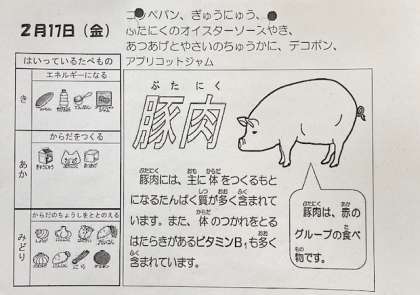 2月17日（金）
コ ペパン、ぎゅうにゅう、
ぶたにくのオイスターソースやき、
あつあげとやさいのちゅうかに、デコポン、
アプリコットジャム
はいっているたべもの
エネルギーになる
き
からだをつくる
あか
ぎゅうにゅう
からだのちょうしをととのえる
みどり
ぶた にく
豚肉
豚肉には、主に体をつくるもと
になるたんぱく質が多く含まれて
います。また、体のつかれをとる
はたらきがあるビタミンB₁も多く
含まれています。
豚肉は、赤の
グループの食べ
物です。